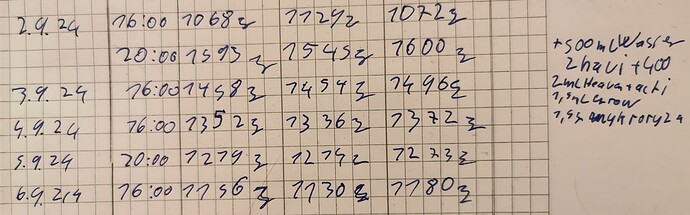 2.9.24 16:00 1068g 1129g 1072g
20:00 1593g 1545g 1600g
3.9.24 16:00 1458g 1454g 1496g
4.9.24 16:00 1352g 1336g 1372g
5.9.24 20:00 1219g 1214g 1273g
6.9.24 16:00 1156g 1130g 1180g
+500ml Wasser
2 havi +400
2ml Heaven + acti
1,5ml Grow
1,5g mykroryza